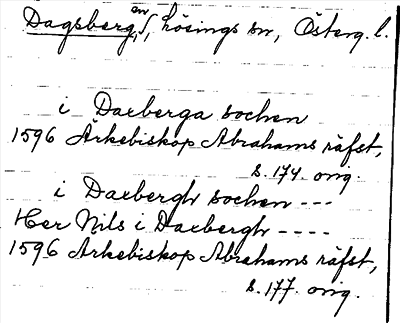 Dagsberg, sn, Lösings sn, Österg. l.
i Daxberga sochen
1596 Ärkebiskop Abrahams räfst,
s. 174. orig.
i Daxbergh sochen ---
Her Nils i Daxbergh ----
1596 Ärkebiskop Abrahams räfst,
s. 177. orig.